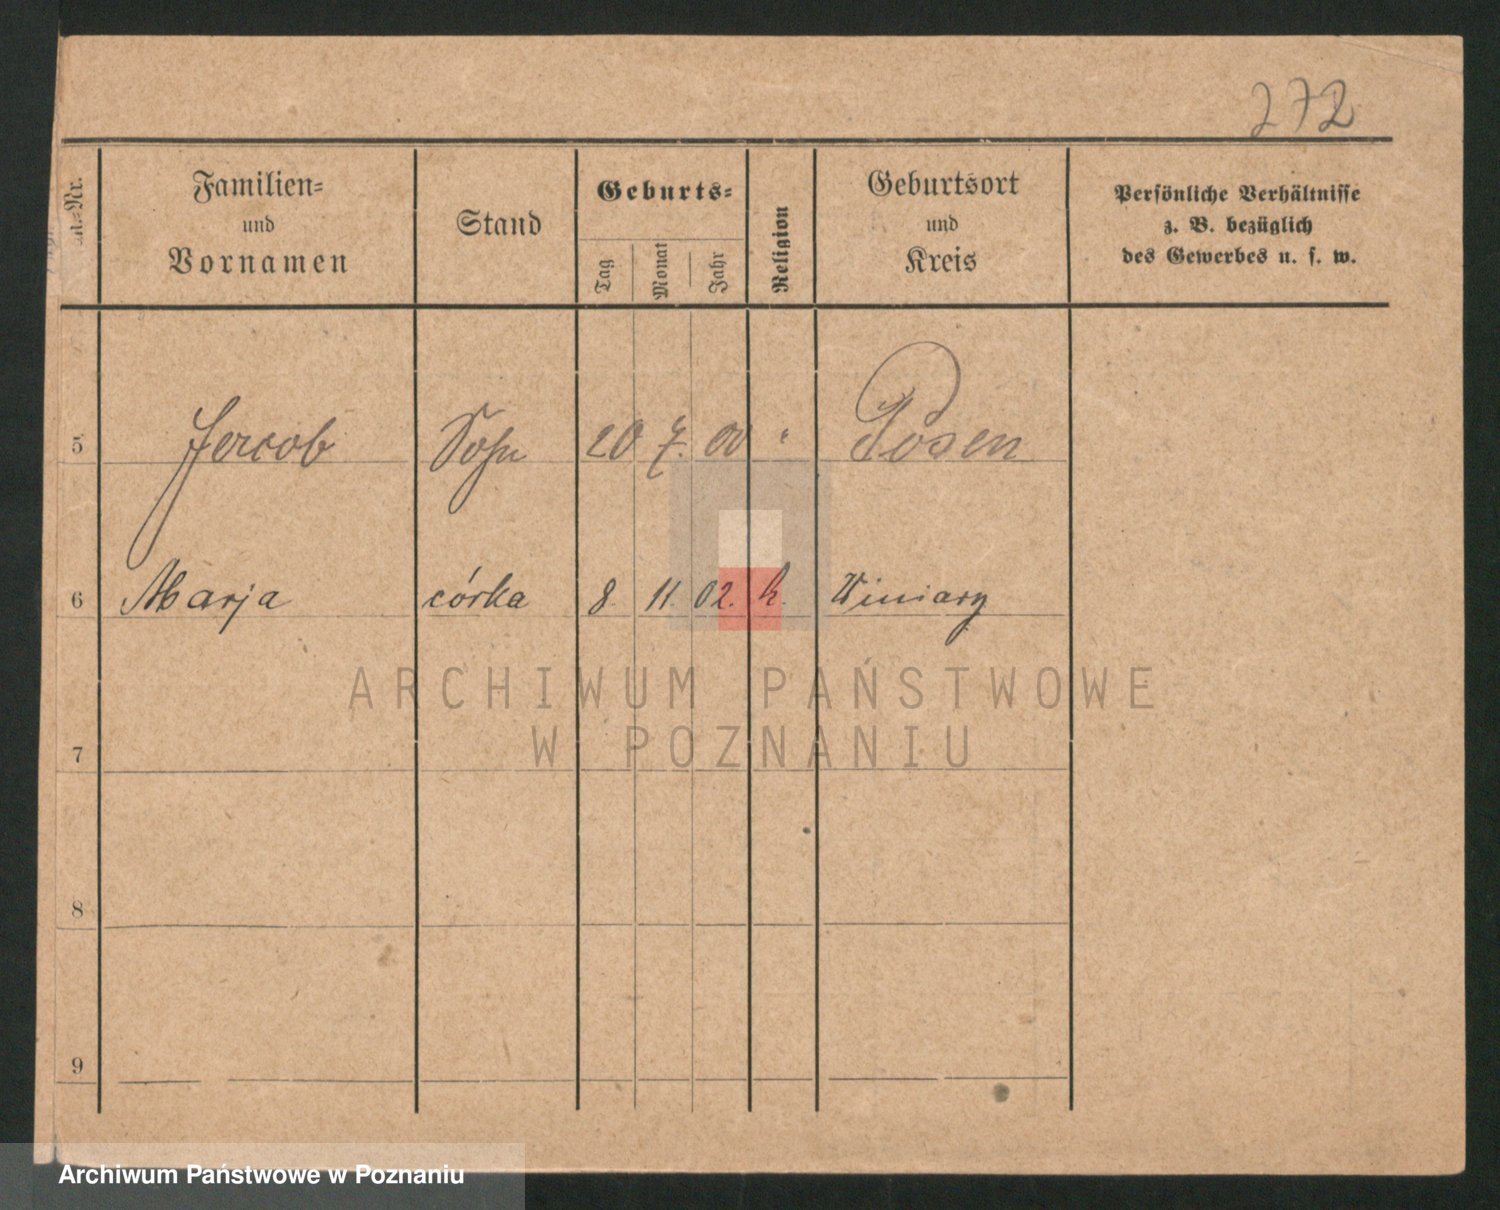 272
Familien=
und
Vornamen
Stand
Geburts=
Tag
Monat
Jahr
Religion
Geburtsort
und
Kreis
Persönliche Verhältnisse
z. B. bezüglich
des Gewerbes u. s. w.
5 Jacob Sohn 20 7. 00 " Posen
6 Marja córka 8. 11. 02. k. Winiary
7
8
9
ARCHIWUM PAŃSTWOWE
W POZNANIU
Archiwum Państwowe w Poznaniu